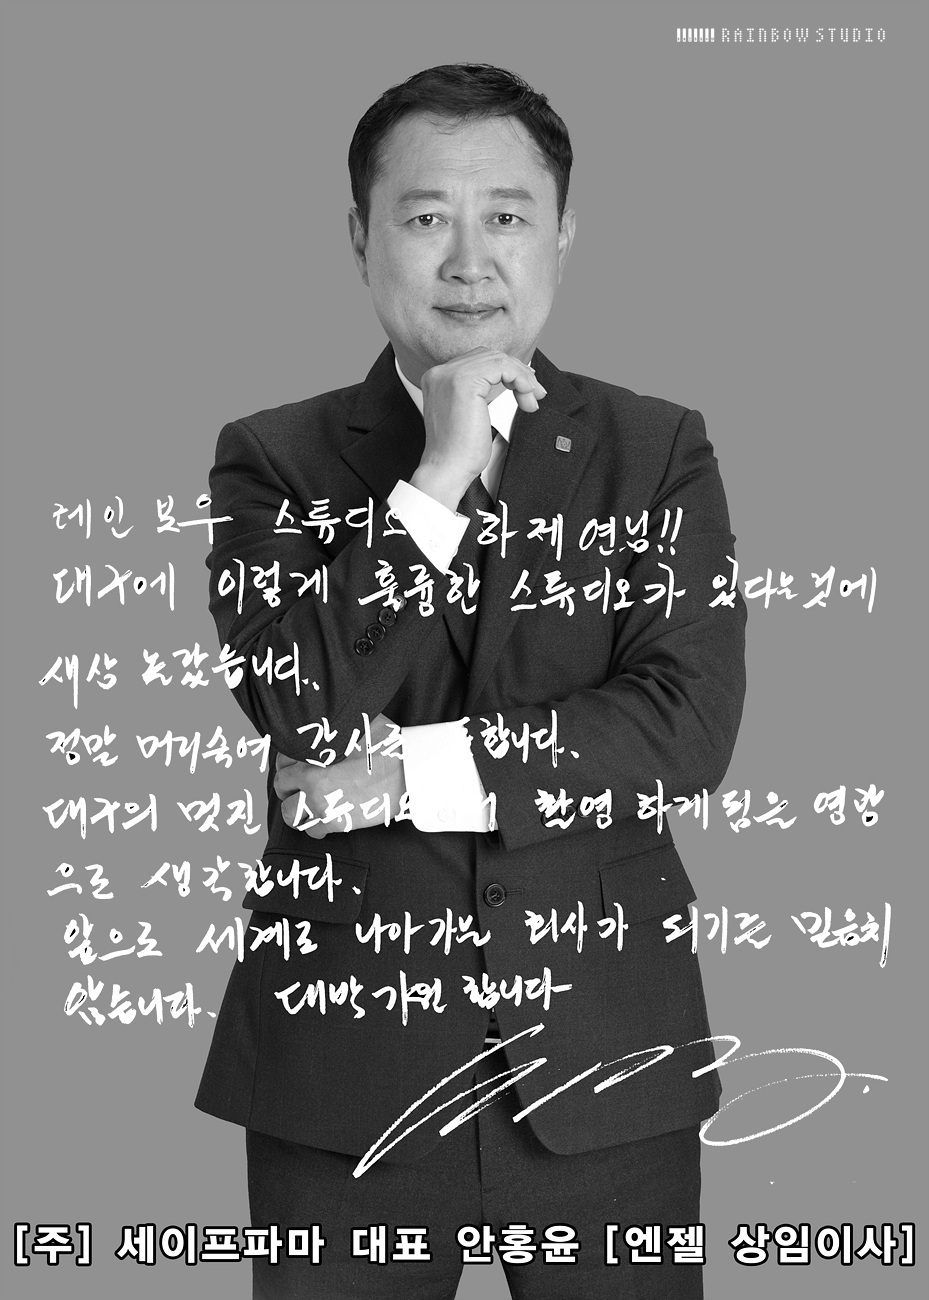 RAINBOW STUDIO
레인 보우 스튜디오 하제연님!!
대구에 이렇게 훌륭한 스튜디오가 있다는것에
새삼 놀랐습니다.
정말 머리숙여 감사를 표합니다.
대구의 멋진 스튜디오에서 촬영 하게됨을 영광
으로 생각합니다.
앞으로 세계로 나아가는 회사가 되기를 믿음치
않습니다. 대박기원 합니다
[주] 세이프파마 대표 안홍윤 [엔젤 상임이사]